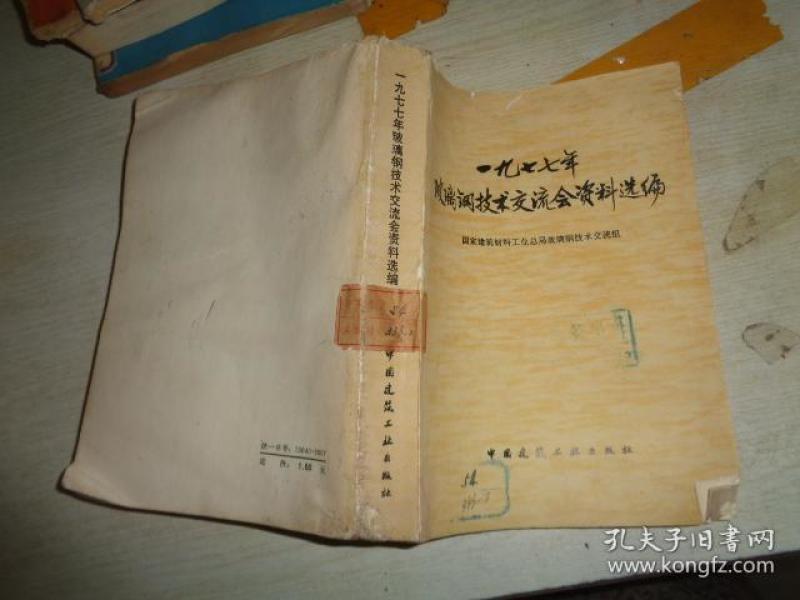 一九七七年
玻璃钢技术交流会资料选编
国家建筑材料工业总局玻璃钢技术交流组
中国建筑工业出版社
54
一九七七年玻璃钢技术交流会资料选编
54
中国建筑工业出版社
统一书号：
定价：1.60元
孔夫子旧书网
www.kongfz.com